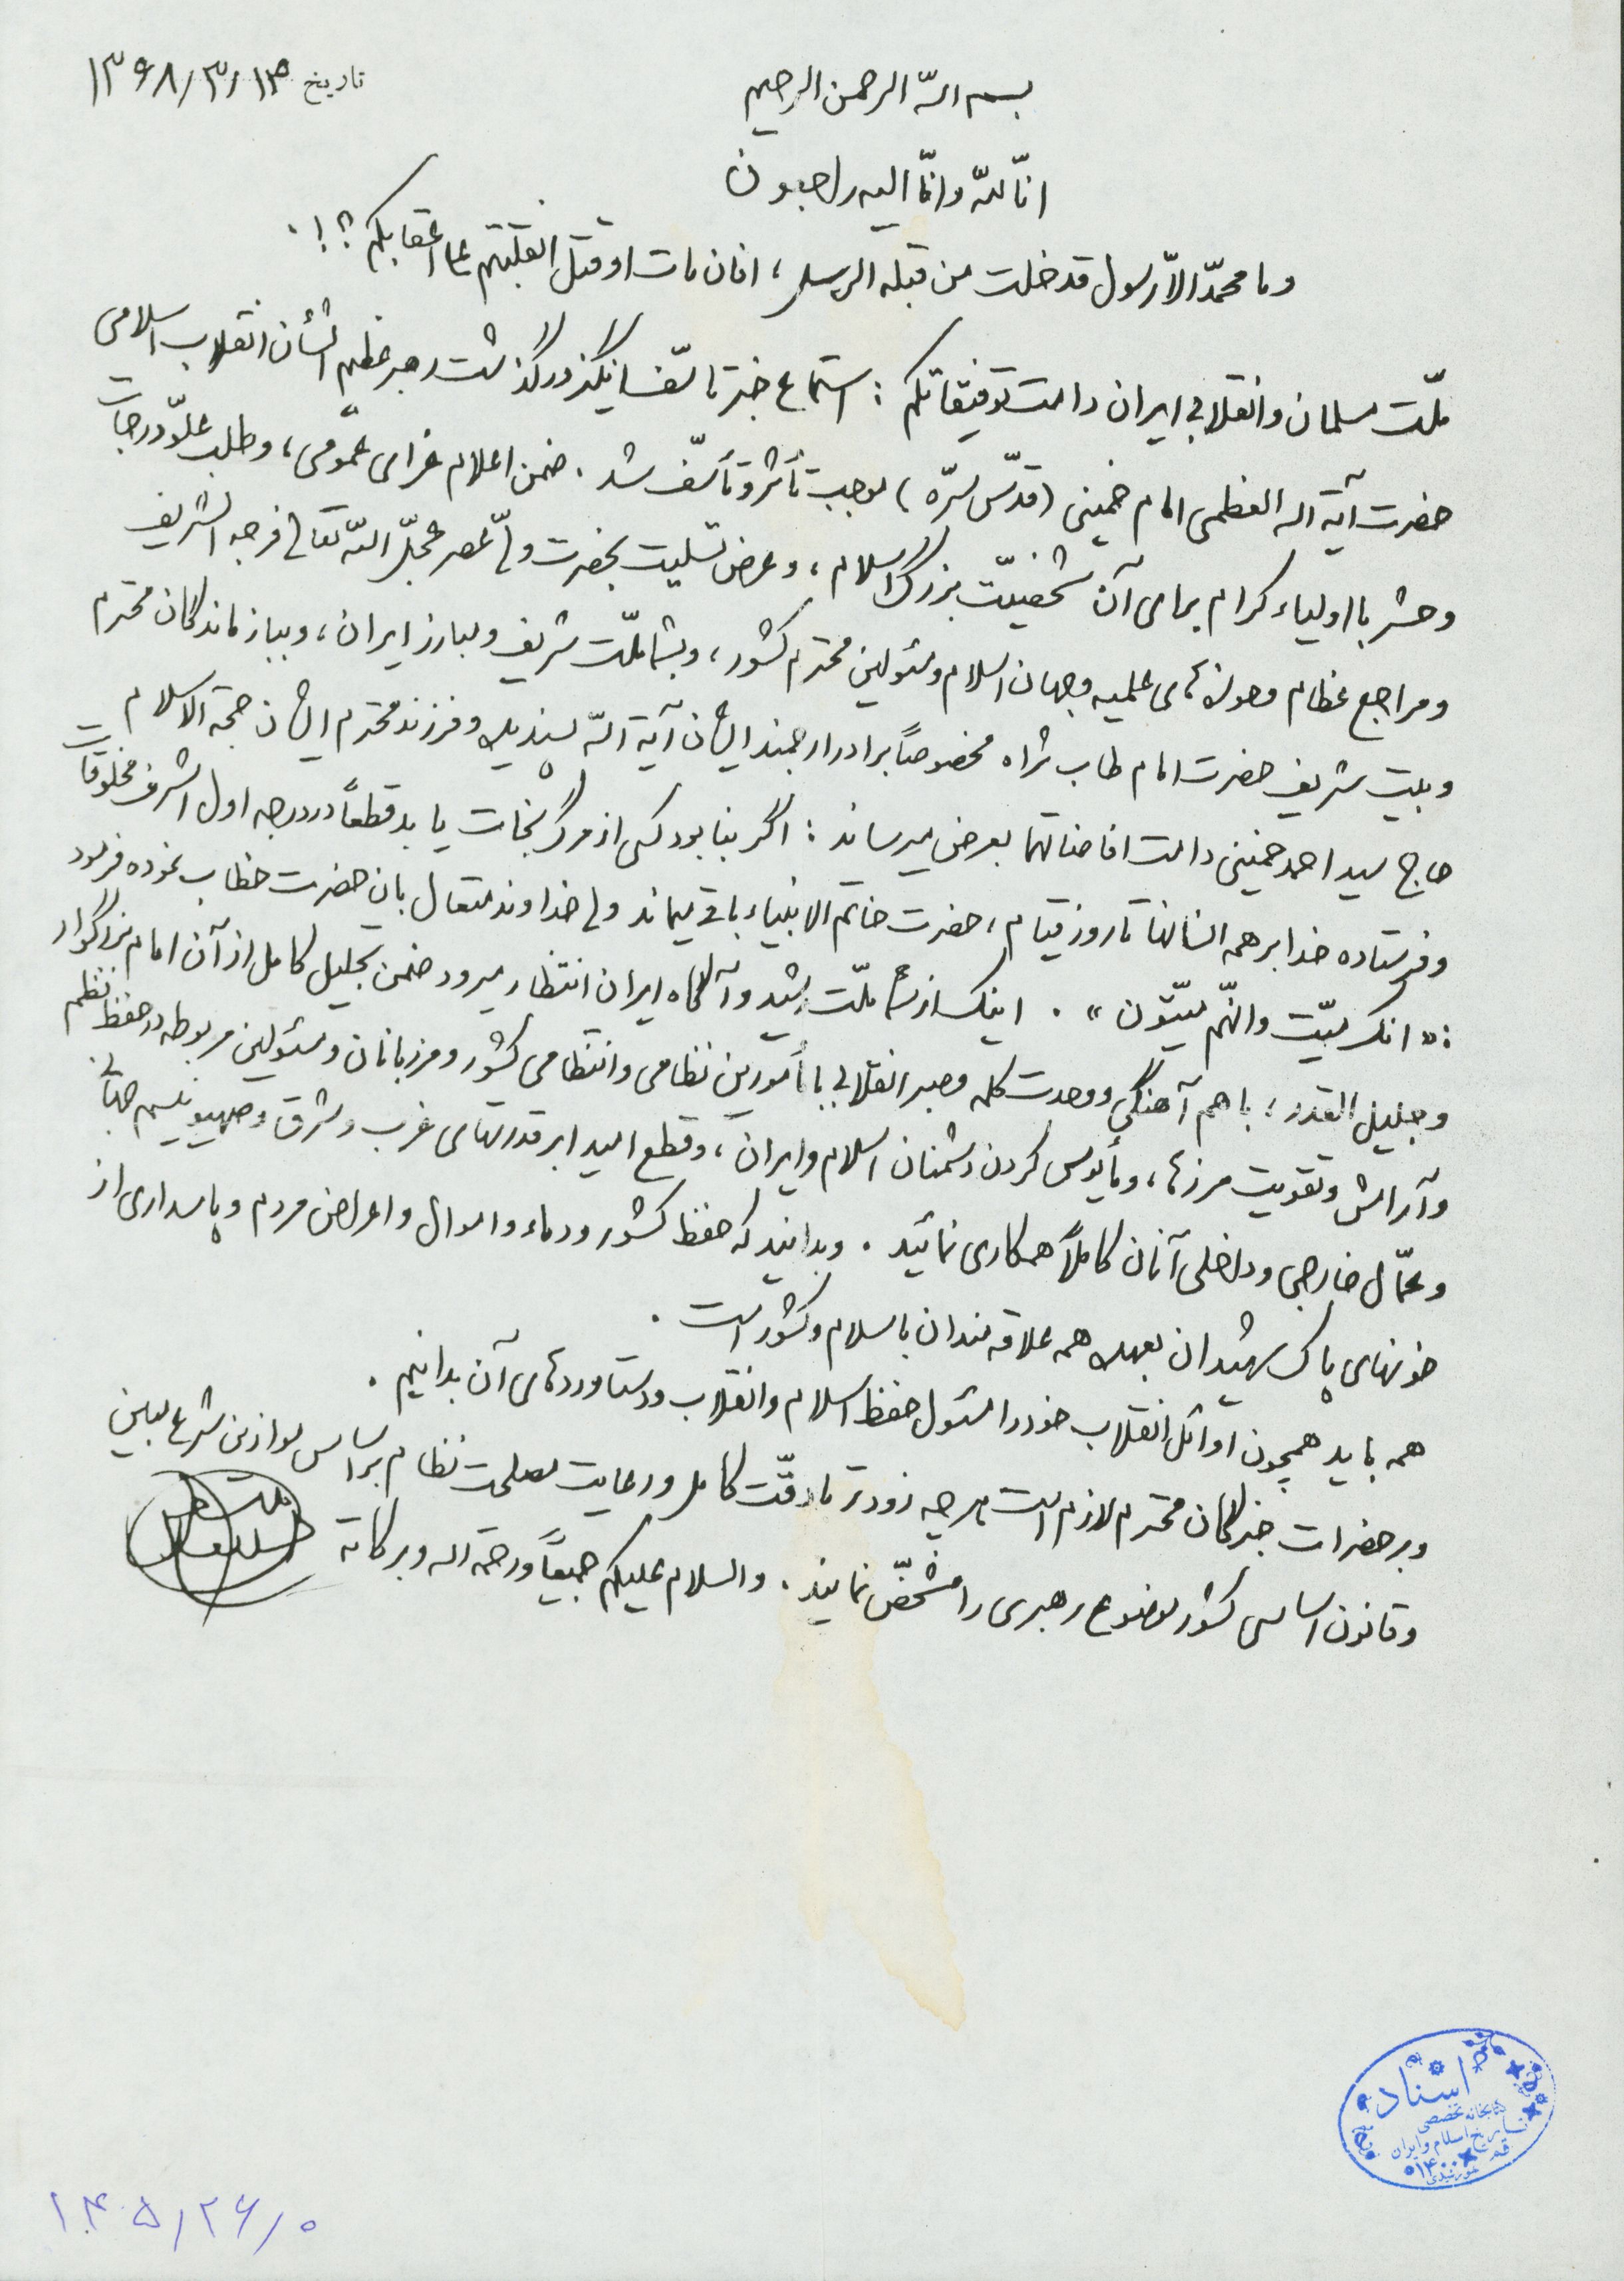 تاریخ ۱۳۶۸/۳/۱۴
بسم اللّه الرحمن الرحیم
انّا للّه وانّا الیه راجعون
وما محمّد الاّ رسول قد خلت من قبله الرسل، افان مات او قتل انقلبتم علی اعقابکم؟!.
ملّت مسلمان وانقلابی ایران دامت توفیقاتکم: استماع خبر تاسّف انگیز درگذشت رهبر عظیم الشأن انقلاب اسلامی
حضرت آیة اله العظمی امام خمینی (قدّس سرّه) موجب تأثر و تأسّف شد. ضمن اعلام عزای عمومی، وطلب علوّ درجات
وحشر با اولیاء کرام برای آن شخصیّت بزرگ اسلام، وعرض تسلیت بحضرت ولی عصر عجّل اللّه تعالی فرجه الشریف
ومراجع عظام وحوزه های علمیه وجهان اسلام ومسئولین محترم کشور، وبشما ملّت شریف ومبارز ایران، وببازماندگان محترم
وبیت شریف حضرت امام طاب ثراه مخصوصاً برادر ارجمند ایشان آیة اللّه پسندیده وفرزند محترم ایشان حجة الاسلام
حاج سید احمد خمینی دامت افاضاتهما بعرض میرساند: اگر بنا بود کسی از مرگ نجات یابد قطعاً در درجه اول اشرف مخلوقات
وفرستاده خدا بر همه انسانها تا روز قیام، حضرت خاتم الانبیاء باقی میماند ولی خداوند متعال بان حضرت خطاب نموده فرمود
:« انک میّت وانّهم میّتون ». اینک از شما ملّت رشید وآگاه ایران انتظار میرود ضمن تجلیل کامل از آن امام بزرگوار
وجلیل القدر، با هم آهنگی ووحدت کلمه وصبر انقلابی با مأمورین نظامی وانتظامی کشور ومرزبانان ومسئولین مربوطه در حفظ نظم
وآرامش وتقویت مرزها، ومأیوس کردن دشمنان اسلام وایران، وقطع امید ابرقدرتهای غرب وشرق وصهیونیسم جهانی
وعمّال خارجی وداخلی آنان کاملاً همکاری نمائید. وبدانید که حفظ کشور ودماء واموال واعراض مردم وپاسداری از
خونهای پاک شهیدان بعهده همه علاقه مندان باسلام وکشور است.
همه باید همچون اوائل انقلاب خود را مسئول حفظ اسلام وانقلاب ودستاوردهای آن بدانیم.
وبر حضرات خبرگان محترم لازم است هرچه زودتر با دقّت کامل ورعایت مصلحت نظام بر اساس موازین شرع مبین
وقانون اساسی کشور موضوع رهبری را مشخّص نمایند. والسلام علیکم جمیعاً ورحمة اله وبرکاته
اسناد
کتابخانه تخصصی
تاریخ اسلام و ایران
قم
۱۴۰۵/۲۶/۰